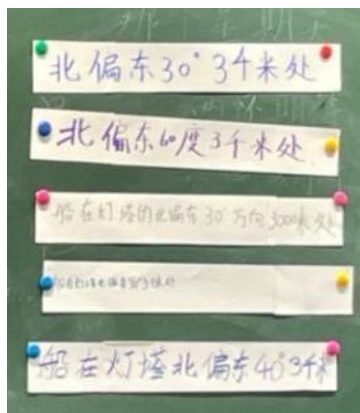 北偏东30°3千米处
北偏东60度3千米处
船在灯塔的北偏东30°方向3000米处
船在灯塔北偏东40°3千米